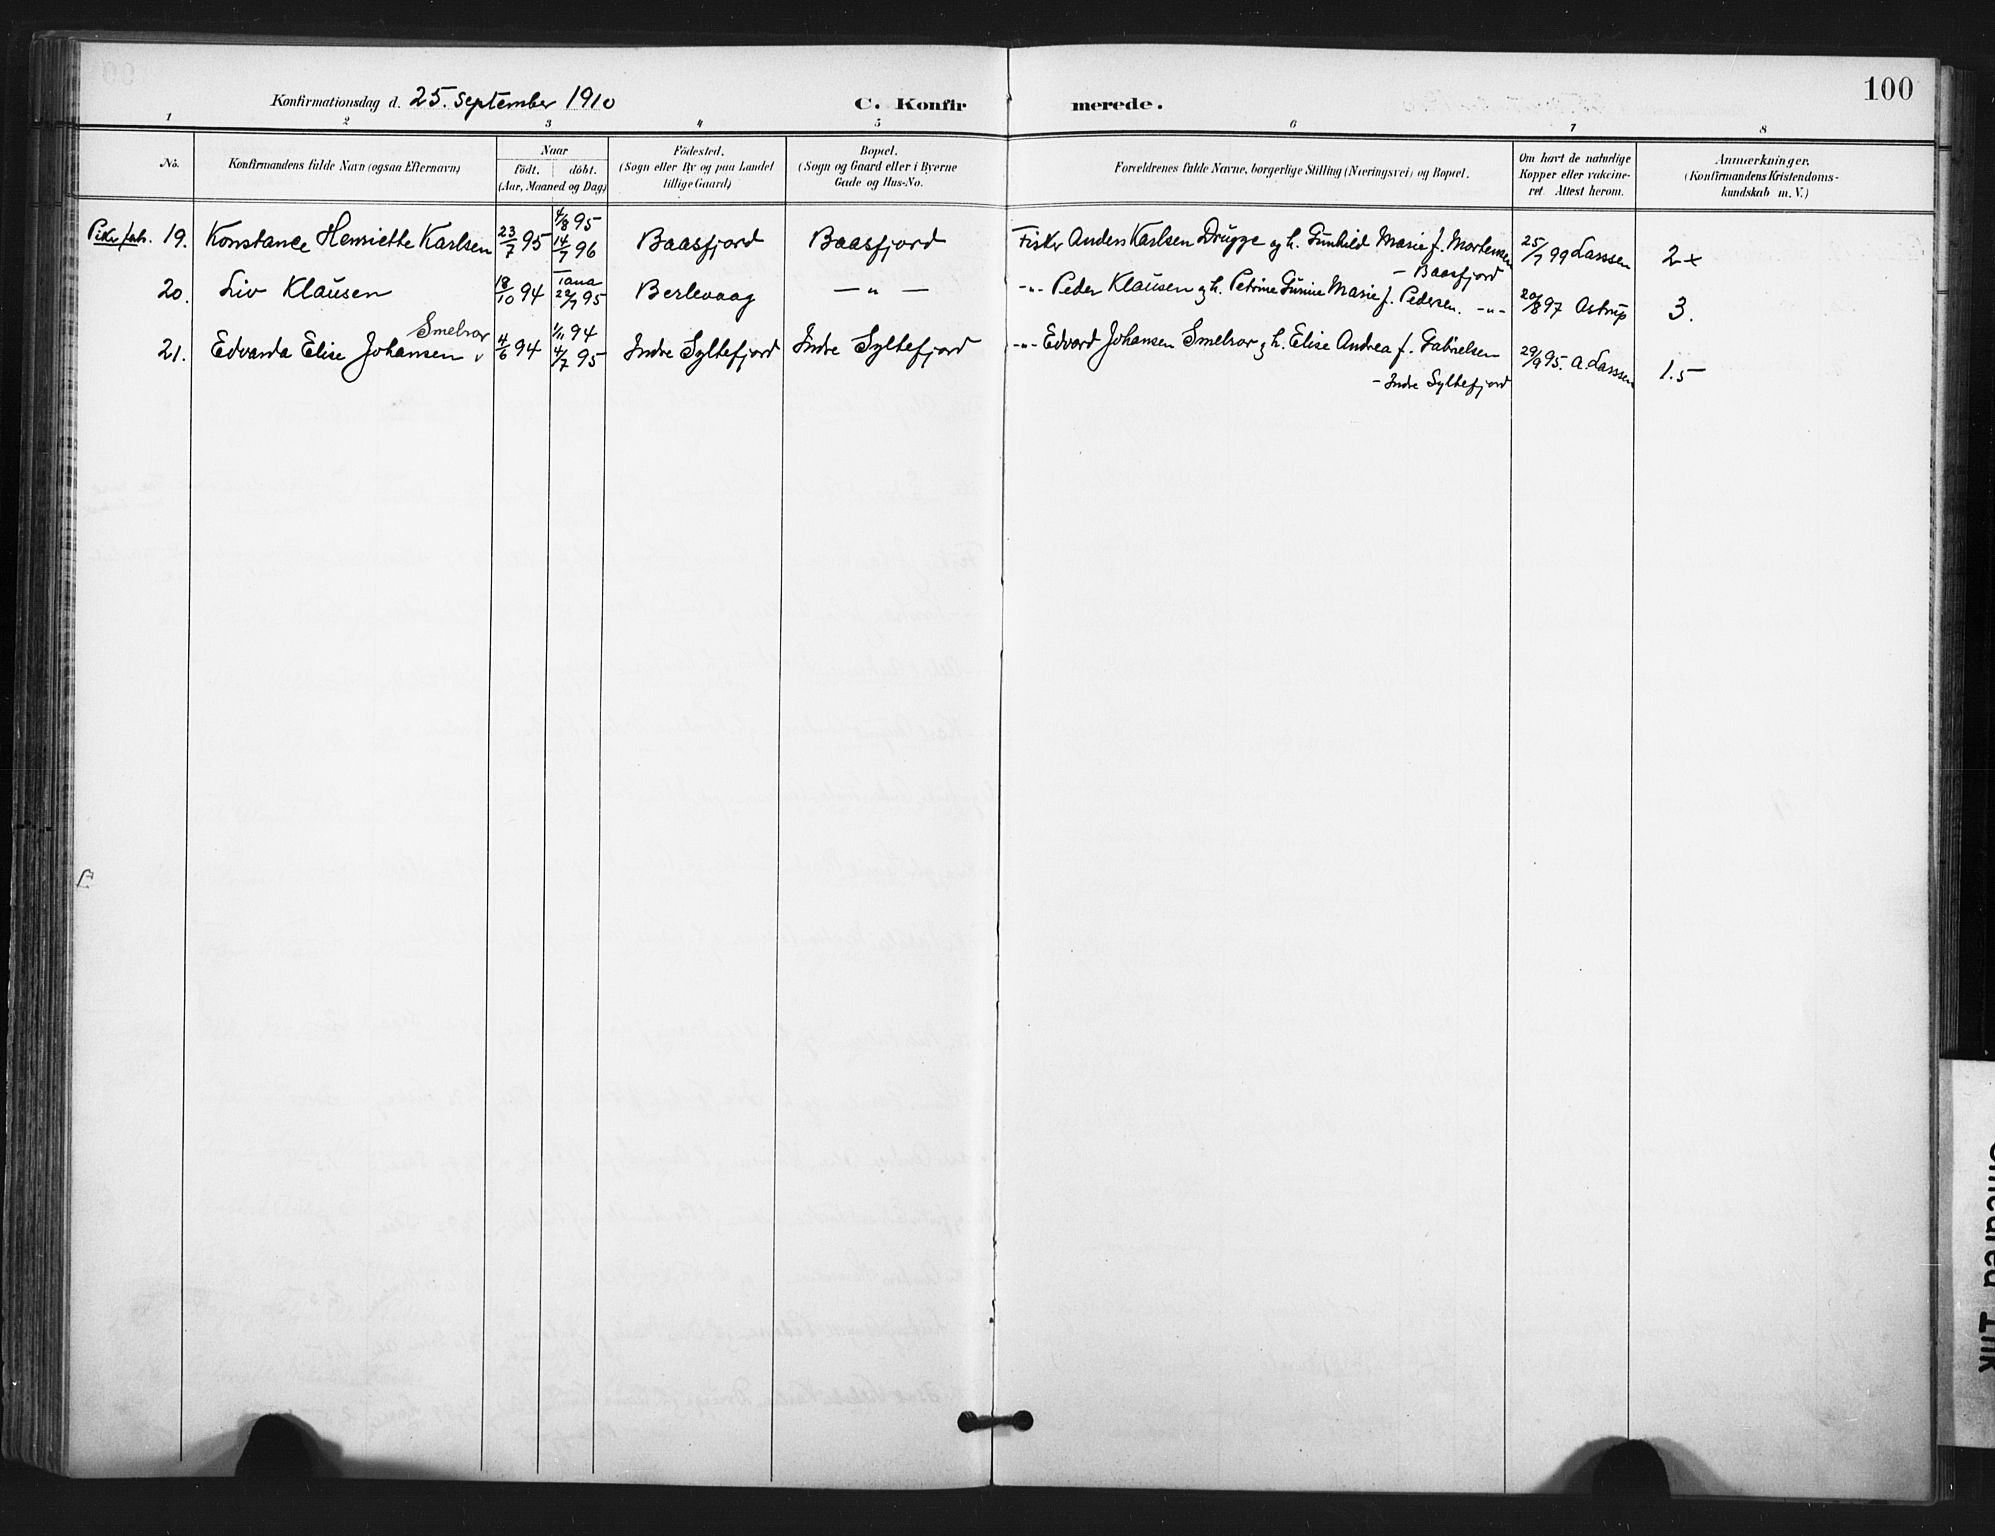 100
Konfirmationsdag d. 25. September 1910 C. Konfirmerede.
1 2 3 4 5 6 7 8
No. Konfirmandens fulde Navn (ogsaa Efternavn) Naar födt. döbt. (Aar, Maaned og Dag) Födested. (Sogn eller By og paa Landet tillige Gaard) Bopæl. (Sogn og Gaard eller i Byerne Gade og Hus-No. Forældrenes fulde Navne, borgerlige Stilling (Næringsvei) og Bopæl. Om havt de naturlige Kopper eller vakcineret. Attest herom. Anmærkninger. (Konfirmandens Kristendomskundskab m. V.)
19. Konstance Henriette Karlsen 23/7 95 4/8 95 14/7 96 Baasfjord Baasfjord Fisker Anders Karlsen Drugge og h. Gunhild Marie f. Mortensen - Baasfjord 25/7 99 Larssen 2+
20. Liv Klausen 18/10 94 Tana 22/7 95 Berlevaag — " — -"- Peder Klausen og h. Petrine Gurine Marie f. Pedersen. -"- 20/8 97 Astrup 3.
21. Edvarda Elise Johansen Smelror 4/6 94 1/11 94 4/7 95 Indre Syltefjord Indre Syltefjord -"- Edvard Johansen Smelror og h. Elise Andrea f. Gabrielsen - Indre Syltefjord 29/9 95. A. Larssen 1.5